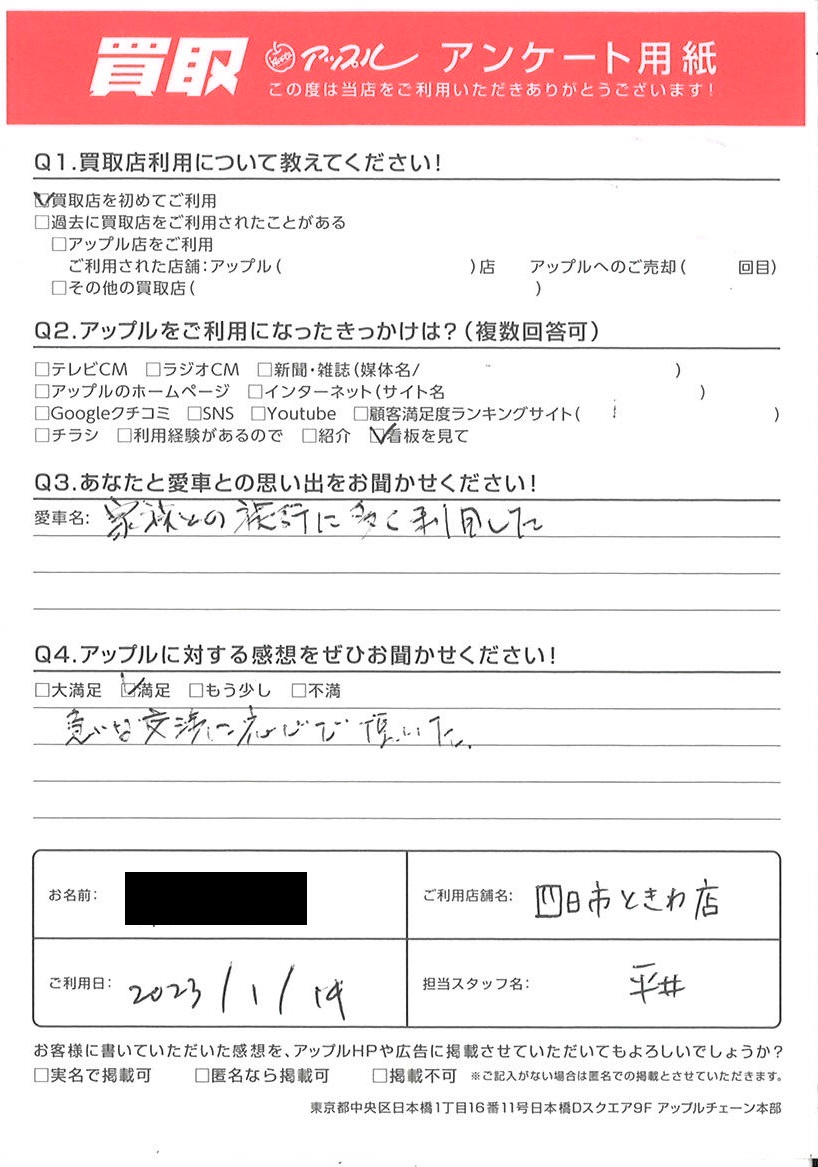 買取 アップル アンケート用紙
この度は当店をご利用いただきありがとうございます!
Q1.買取店利用について教えてください!
☑買取店を初めてご利用
□過去に買取店をご利用されたことがある
□アップル店をご利用
ご利用された店舗:アップル( )店 アップルへのご売却( 回目)
□その他の買取店( )
Q2.アップルをご利用になったきっかけは?(複数回答可)
□テレビCM □ラジオCM □新聞・雑誌(媒体名/ )
□アップルのホームページ □インターネット(サイト名 )
□Googleクチコミ □SNS □Youtube □顧客満足度ランキングサイト( )
□チラシ □利用経験があるので □紹介 ☑看板を見て
Q3.あなたと愛車との思い出をお聞かせください!
愛車名: 家族との旅行に多く利用した
Q4.アップルに対する感想をぜひお聞かせください!
□大満足 ☑満足 □もう少し □不満
急な交渉に応じて頂いた。
お名前: ご利用店舗名: 四日市ときわ店
ご利用日: 2023/1/14 担当スタッフ名: 平井
お客様に書いていただいた感想を、アップルHPや広告に掲載させていただいてもよろしいでしょうか?
□実名で掲載可 □匿名なら掲載可 □掲載不可 ※ご記入がない場合は匿名での掲載とさせていただきます。
東京都中央区日本橋1丁目16番11号日本橋Dスクエア9F アップルチェーン本部